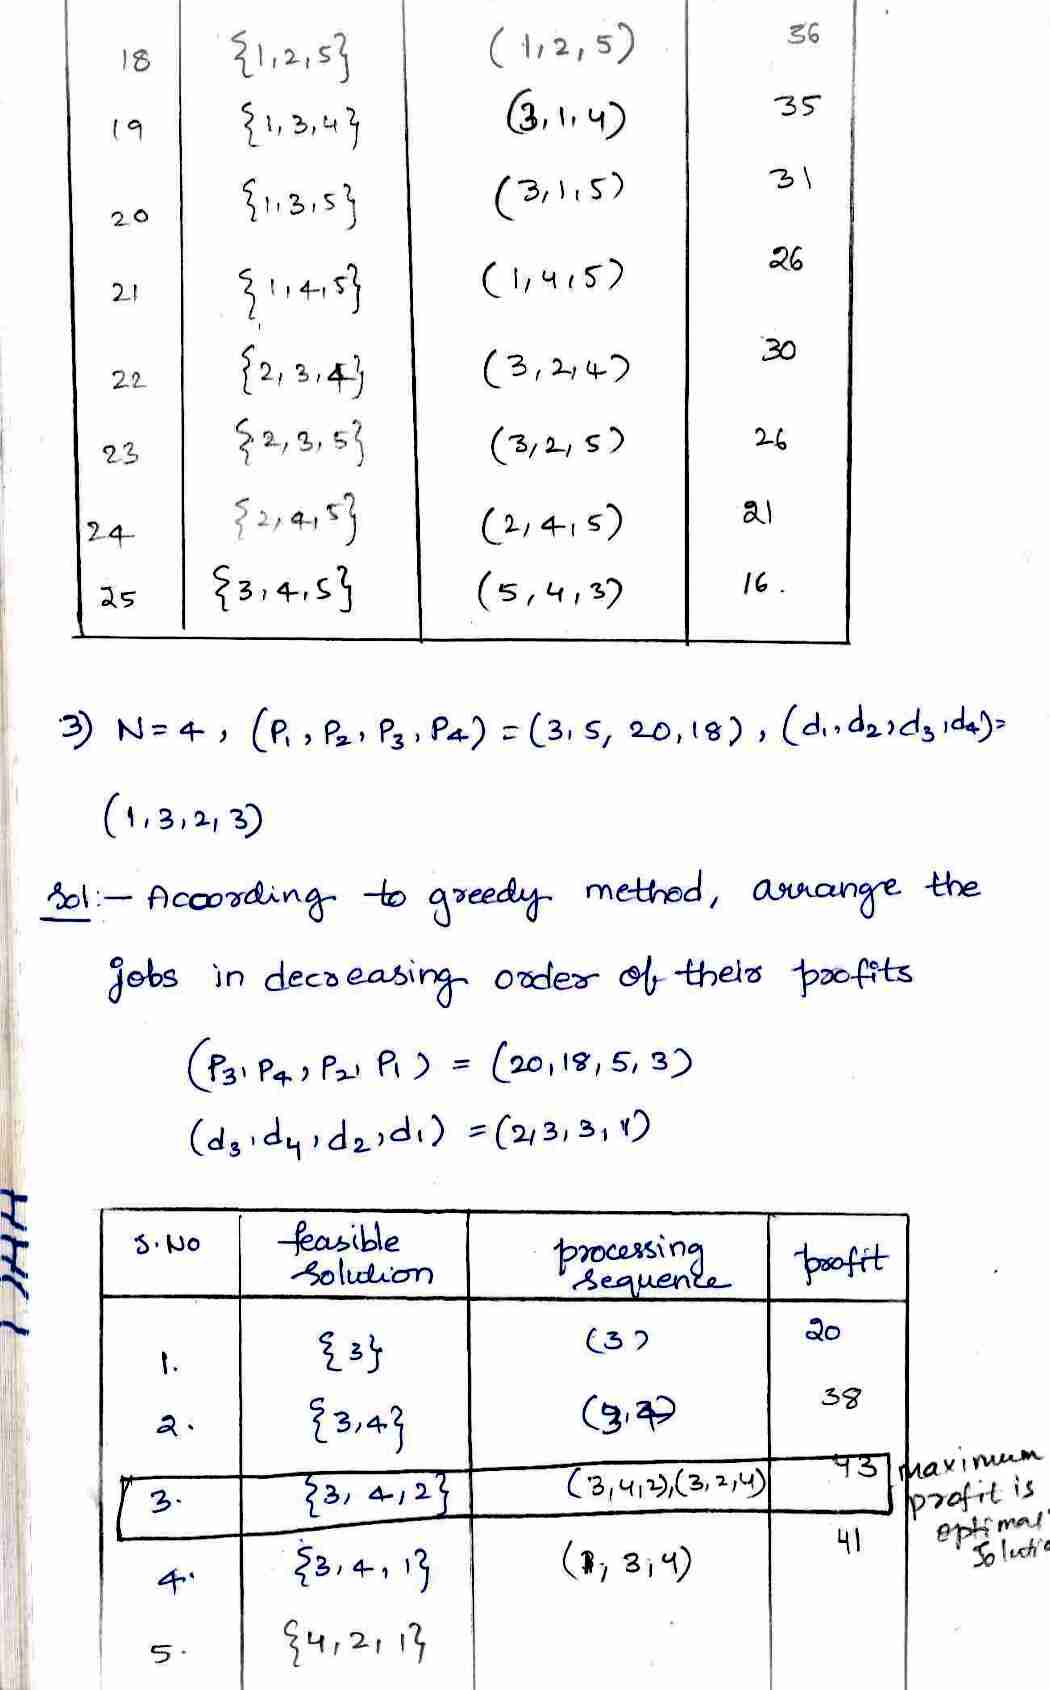 18 {1,2,5} (1,2,5) 36
19 {1,3,4} (3,1,4) 35
20 {1,3,5} (3,1,5) 31
21 {1,4,5} (1,4,5) 26
22 {2,3,4} (3,2,4) 30
23 {2,3,5} (3,2,5) 26
24 {2,4,5} (2,4,5) 21
25 {3,4,5} (5,4,3) 16.
3) N=4, (P1, P2, P3, P4) = (3,5, 20,18), (d1,d2,d3,d4)=
(1,3,2,3)
Sol:- According to greedy method, arrange the
jobs in decreasing order of their profits
(P3, P4, P2, P1) = (20,18,5,3)
(d3,d4,d2,d1) = (2,3,3,1)
S.No feasible solution processing sequence profit
1. {3} (3) 20
2. {3,4} 38
3. {3,4,2} (3,4,2),(3,2,4) 43 maximum
profit is
optimal
4. {3,4,1} (1,3,4) 41
5. {4,2,1}